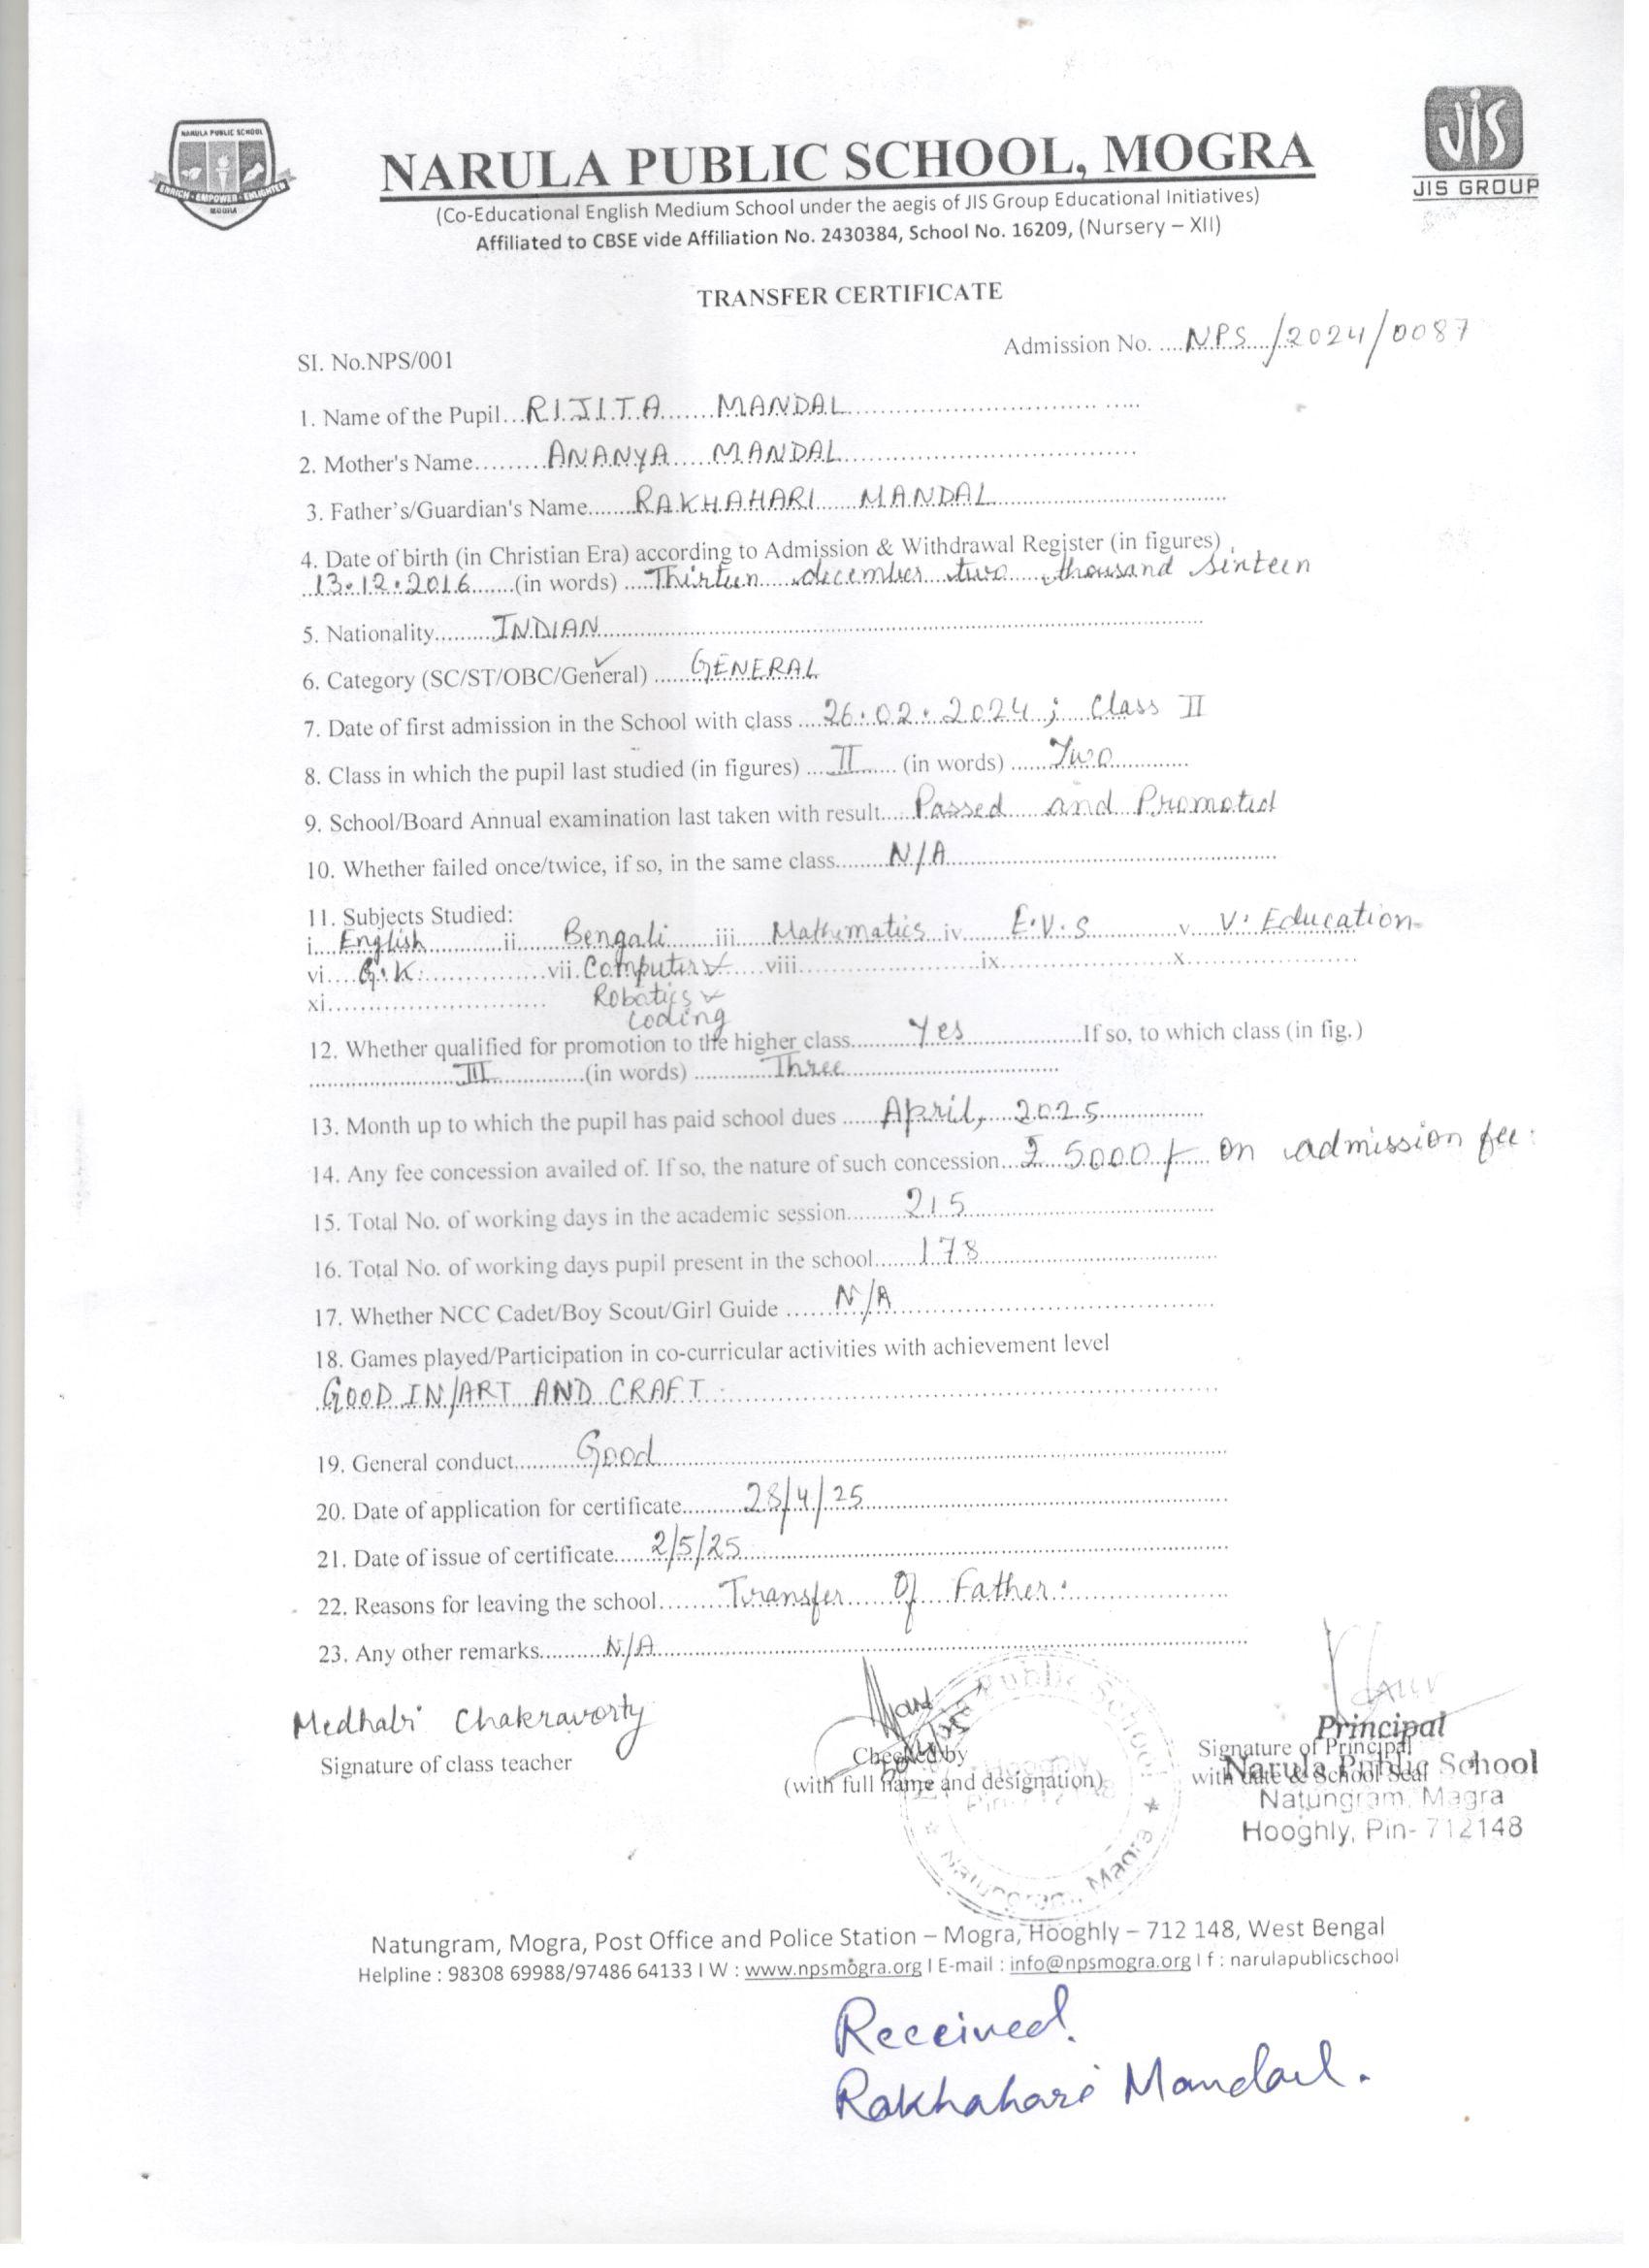 NARULA PUBLIC SCHOOL
ENRICH - EMPOWER - ENLIGHTEN
MOGRA
JIS
JIS GROUP
NARULA PUBLIC SCHOOL, MOGRA
(Co-Educational English Medium School under the aegis of JIS Group Educational Initiatives)
Affiliated to CBSE vide Affiliation No. 2430384, School No. 16209, (Nursery – XII)
TRANSFER CERTIFICATE
SI. No.NPS/001 Admission No. ....NPS/2024/0087
1. Name of the Pupil...RIJITA MANDAL
2. Mother's Name.........ANANYA MANDAL
3. Father's/Guardian's Name.......RAKHAHARI MANDAL
4. Date of birth (in Christian Era) according to Admission & Withdrawal Register (in figures)
13.12.2016.......(in words) ....Thirteen december two thousand sixteen
5. Nationality.........INDIAN
6. Category (SC/ST/OBC/General) ......GENERAL
7. Date of first admission in the School with class ....26.02.2024; Class II
8. Class in which the pupil last studied (in figures) ....II...... (in words) ......Two
9. School/Board Annual examination last taken with result.....Passed and Promoted
10. Whether failed once/twice, if so, in the same class........N/A
11. Subjects Studied:
i....English...........ii......Bengali.......iii.....Mathematics..iv......E.V.S............v...V. Education
vi....G.K...............vii.Computer.....viii..........................ix.........................x.........................
xi............................ Robotics
Coding
12. Whether qualified for promotion to the higher class.........Yes..................If so, to which class (in fig.)
......................III...............(in words) ............Three
13. Month up to which the pupil has paid school dues ......April, 2025
14. Any fee concession availed of. If so, the nature of such concession...₹ 5000/- on admission fee.
15. Total No. of working days in the academic session.........215
16. Total No. of working days pupil present in the school.......178
17. Whether NCC Cadet/Boy Scout/Girl Guide .......N/A
18. Games played/Participation in co-curricular activities with achievement level
GOOD IN/ART AND CRAFT.
19. General conduct..........Good
20. Date of application for certificate..........28/4/25
21. Date of issue of certificate......2/5/25
22. Reasons for leaving the school.........Transfer Of Father.
23. Any other remarks..........N/A
Medhabi Chakravorty
Signature of class teacher
Checked by
(with full name and designation)
Public School
Hooghly
Natungram, Magra
Signature of Principal
with date & School Seal
Principal
Narula Public School
Natungram, Magra
Hooghly, Pin- 712148
Natungram, Mogra, Post Office and Police Station – Mogra, Hooghly – 712 148, West Bengal
Helpline : 98308 69988/97486 64133 I W : www.npsmogra.org I E-mail : info@npsmogra.org I f : narulapublicschool
Received.
Rakhahari Mandal.